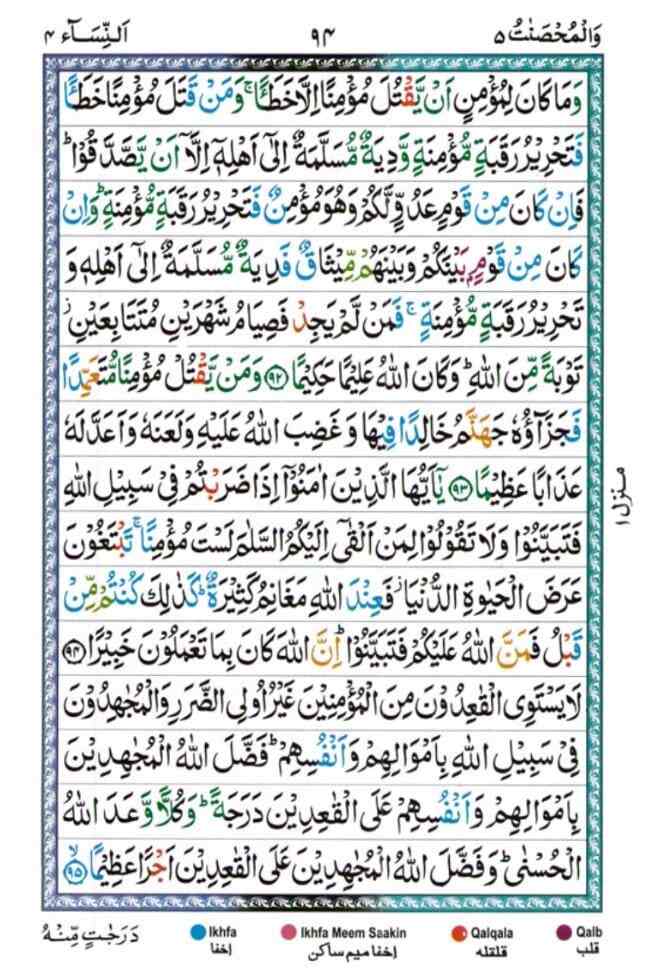 وَالْمُحْصَنٰتُ ٥
٩٤
اَلنِّسَـآء ٤
وَمَا كَانَ لِمُؤْمِنٍ اَنْ يَّقْتُلَ مُؤْمِنًا اِلَّا خَطَـًٔا ۚ وَمَنْ قَتَلَ مُؤْمِنًا خَطَـًٔا
فَتَحْرِيْرُ رَقَبَةٍ مُّؤْمِنَةٍ وَّدِيَةٌ مُّسَلَّمَةٌ اِلٰٓى اَهْلِهٖۤ اِلَّاۤ اَنْ يَّصَّدَّقُوْا ؕ
فَاِنْ كَانَ مِنْ قَوْمٍ عَدُوٍّ لَّكُمْ وَهُوَ مُؤْمِنٌ فَتَحْرِيْرُ رَقَبَةٍ مُّؤْمِنَةٍ ؕ وَاِنْ
كَانَ مِنْ قَوْمٍۭ بَيْنَكُمْ وَبَيْنَهُمْ مِّيْثَاقٌ فَدِيَةٌ مُّسَلَّمَةٌ اِلٰٓى اَهْلِهٖ وَ
تَحْرِيْرُ رَقَبَةٍ مُّؤْمِنَةٍ ۚ فَمَنْ لَّمْ يَجِدْ فَصِيَامُ شَهْرَيْنِ مُتَتَابِعَيْنِ ز
تَوْبَةً مِّنَ اللّٰهِ ؕ وَكَانَ اللّٰهُ عَلِيْمًا حَكِيْمًا ﴿٩٢﴾ وَمَنْ يَّقْتُلْ مُؤْمِنًا مُّتَعَمِّدًا
فَجَزَآؤُهٗ جَهَنَّمُ خَالِدًا فِيْهَا وَغَضِبَ اللّٰهُ عَلَيْهِ وَلَعَنَهٗ وَاَعَدَّ لَهٗ
عَذَابًا عَظِيْمًا ﴿٩٣﴾ يٰۤاَيُّهَا الَّذِيْنَ اٰمَنُوْۤا اِذَا ضَرَبْتُمْ فِيْ سَبِيْلِ اللّٰهِ
فَتَبَيَّنُوْا وَلَا تَقُوْلُوْا لِمَنْ اَلْقٰۤى اِلَيْكُمُ السَّلٰمَ لَسْتَ مُؤْمِنًا ۚ تَبْتَغُوْنَ
عَرَضَ الْحَيٰوةِ الدُّنْيَا ز فَعِنْدَ اللّٰهِ مَغَانِمُ كَثِيْرَةٌ ؕ كَذٰلِكَ كُنْتُمْ مِّنْ
قَبْلُ فَمَنَّ اللّٰهُ عَلَيْكُمْ فَتَبَيَّنُوْا ؕ اِنَّ اللّٰهَ كَانَ بِمَا تَعْمَلُوْنَ خَبِيْرًا ﴿٩٤﴾
لَا يَسْتَوِى الْقٰعِدُوْنَ مِنَ الْمُؤْمِنِيْنَ غَيْرُ اُولِى الضَّرَرِ وَالْمُجٰهِدُوْنَ
فِيْ سَبِيْلِ اللّٰهِ بِاَمْوَالِهِمْ وَاَنْفُسِهِمْ ؕ فَضَّلَ اللّٰهُ الْمُجٰهِدِيْنَ
بِاَمْوَالِهِمْ وَاَنْفُسِهِمْ عَلَى الْقٰعِدِيْنَ دَرَجَةً ؕ وَكُلًّا وَّعَدَ اللّٰهُ
الْحُسْنٰى ؕ وَفَضَّلَ اللّٰهُ الْمُجٰهِدِيْنَ عَلَى الْقٰعِدِيْنَ اَجْرًا عَظِيْمًا ﴿٩٥﴾
منزل ١
دَرَجٰتٍ مِّنْهُ
Ikhfa
اخفا
Ikhfa Meem Saakin
اخفا میم ساکن
Qalqala
قلقله
Qalb
قلب